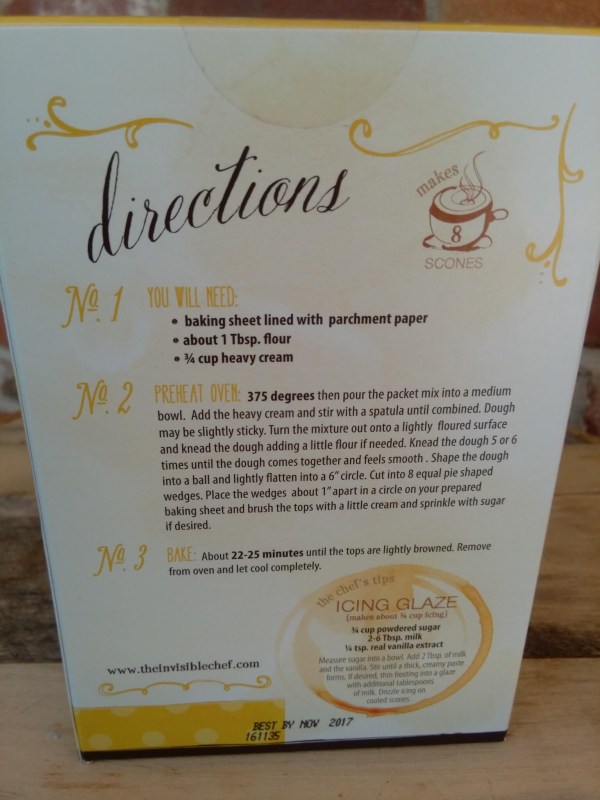 directions
makes
8
SCONES
No. 1 YOU WILL NEED:
• baking sheet lined with parchment paper
• about 1 Tbsp. flour
• ¾ cup heavy cream
No. 2 PREHEAT OVEN: 375 degrees then pour the packet mix into a medium
bowl. Add the heavy cream and stir with a spatula until combined. Dough
may be slightly sticky. Turn the mixture out onto a lightly floured surface
and knead the dough adding a little flour if needed. Knead the dough 5 or 6
times until the dough comes together and feels smooth . Shape the dough
into a ball and lightly flatten into a 6" circle. Cut into 8 equal pie shaped
wedges. Place the wedges about 1" apart in a circle on your prepared
baking sheet and brush the tops with a little cream and sprinkle with sugar
if desired.
No. 3 BAKE: About 22-25 minutes until the tops are lightly browned. Remove
from oven and let cool completely.
the chef's tips
ICING GLAZE
(makes about ¾ cup icing)
¾ cup powdered sugar
2-6 Tbsp. milk
¼ tsp. real vanilla extract
Measure sugar into a bowl. Add 2 Tbsp. of milk
and the vanilla. Stir until a thick, creamy paste
forms. If desired, thin frosting into a glaze
with additional tablespoons
of milk. Drizzle icing on
cooled scones.
www.theinvisiblechef.com
BEST BY NOV 2017
161135